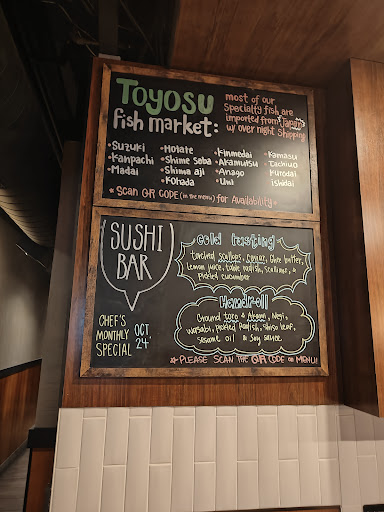 Toyosu
fish market:
most of our
Specialty fish are
imported from Japan
w/ over night Shipping
• Suzuki
• Kanpachi
• Madai
• Hotate
• Shime Saba
• Shima aji
• Kohada
• Kinmedai
• Akamutsu
• Anago
• Uni
• Kamasu
• Tachiuo
• Kurodai
• ishidai
* SCAN QR CODE (in the menu) for Availability *
SUSHI
BAR
CHEF'S
MONTHLY
SPECIAL
OCT
24'
Cold tasting
torched scallops, caviar, Ghee butter,
lemon juice, radish, scallions, &
pickled cucumber
Handroll
Ground toro & Akami, Negi,
Wasabi, pickled Radish, Shiso leaf,
sesame oil & Soy sauce
* PLEASE SCAN THE QR CODE on MENU!